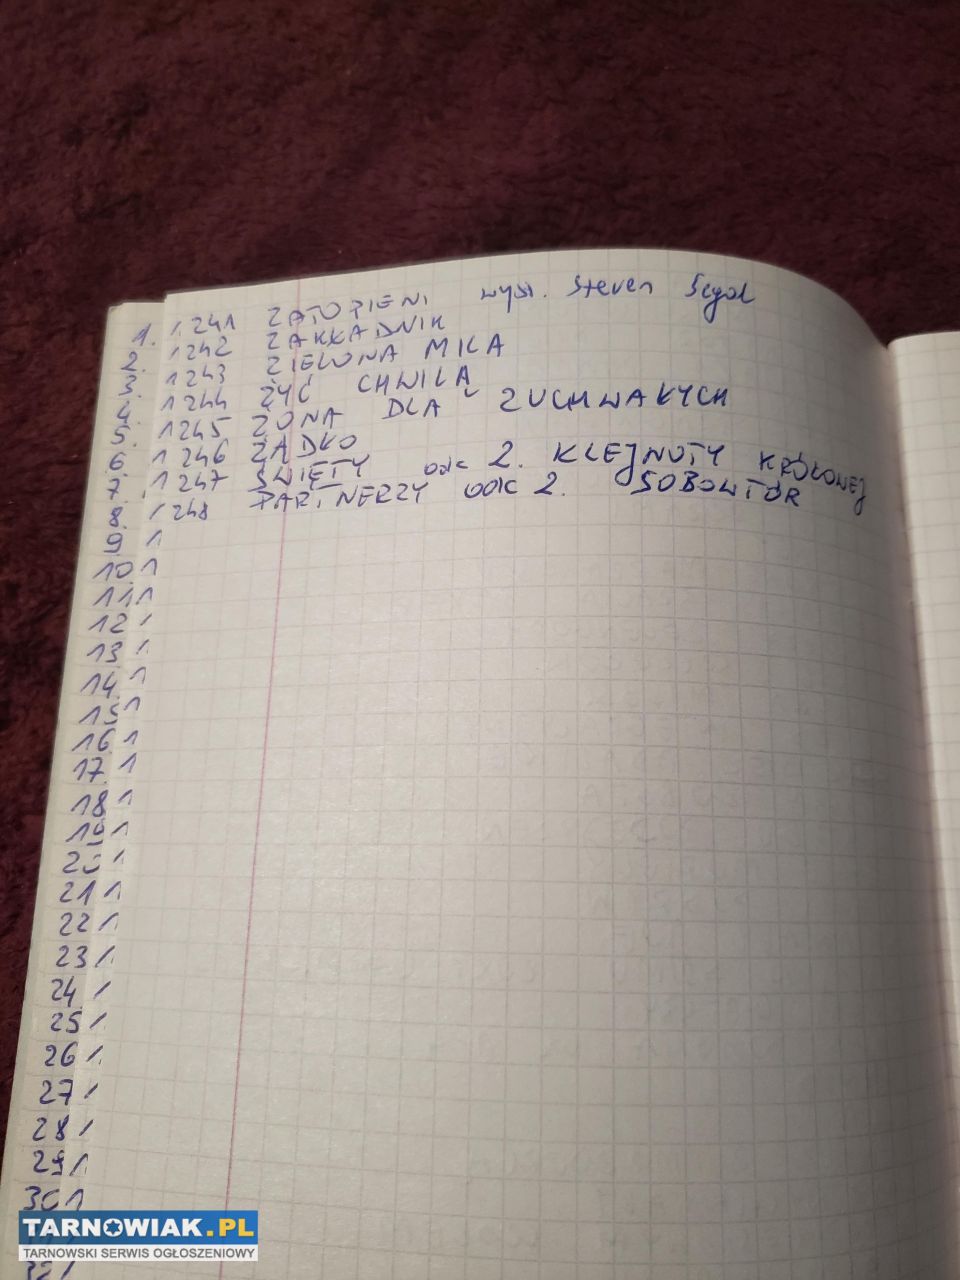 1. 1241 ZATOPIENI wyst. Steven Segal
2. 1242 ZAKŁADNIK
3. 1243 ZIELONA MILA
4. 1244 ŻYĆ CHWILĄ
5. 1245 ŻONA DLA ZUCHWAŁYCH
6. 1246 ŻĄDŁO
7. 1247 ŚWIĘTY odc 2. KLEJNOTY KRÓLOWEJ
8. 1248 PARTNERZY odc 2. SOBOWTÓR
9. 1
10. 1
11. 1
12. 1
13. 1
14. 1
15. 1
16. 1
17. 1
18. 1
19. 1
20. 1
21. 1
22. 1
23. 1
24. 1
25. 1
26. 1
27. 1
28. 1
29. 1
30. 1
32. 1
TARNOWIAK.PL
TARNOWSKI SERWIS OGŁOSZENIOWY